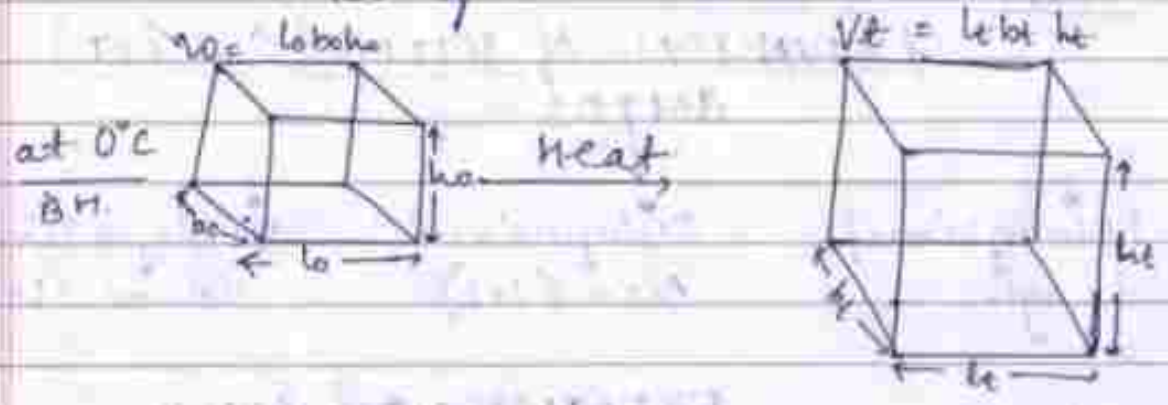 V0 = l0b0h0
Vt = lt bt ht
at 0°C
B.H.
h0
Heat
b0
l0
ht
bt
lt